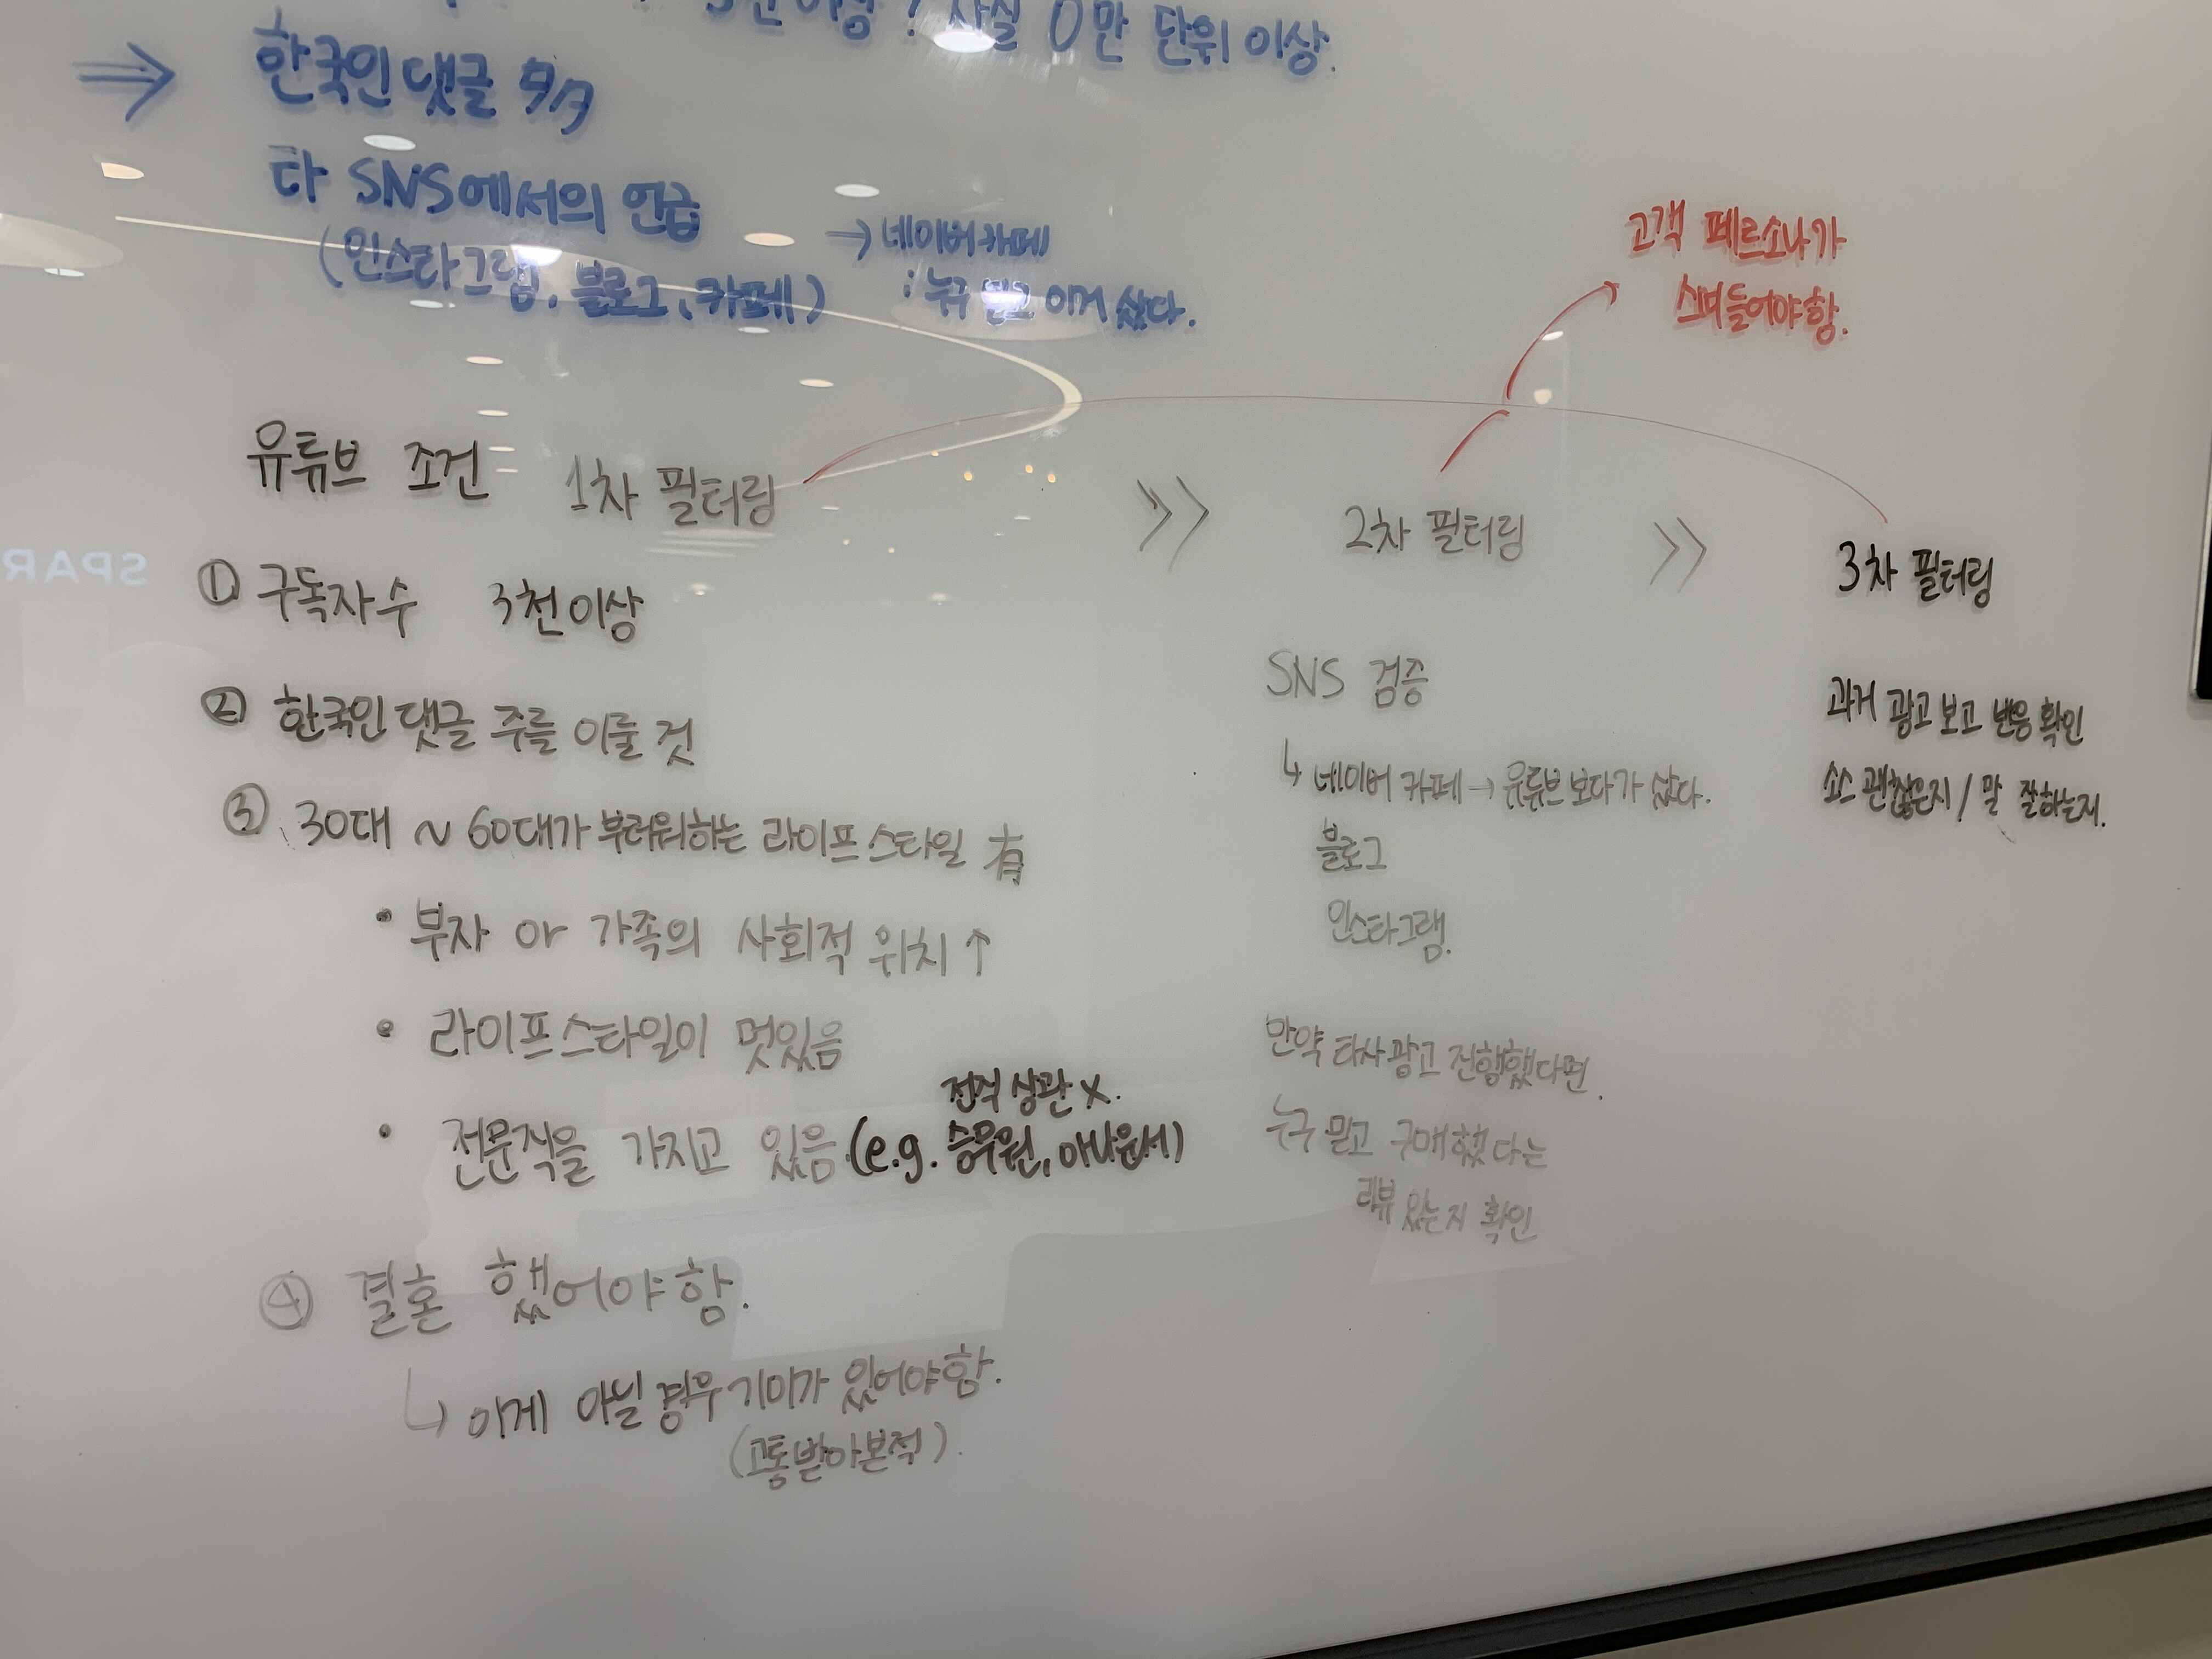 이상? 사실 0만 단위 이상.
⇒ 한국인 댓글
타 SNS에서의 언급
(인스타그램, 블로그, 카페)
→ 네이버카페
: 누구 믿고 이거 샀다.
고객 페르소나가
스며들어야함.
유튜브 조건 1차 필터링
① 구독자수 3천이상
② 한국인 댓글 주를 이룰 것
③ 30대 ~ 60대가 부러워하는 라이프스타일 有
• 부자 or 가족의 사회적 위치 ↑
• 라이프스타일이 멋있음
전직 상관 X.
• 전문직을 가지고 있음 (e.g. 승무원, 아나운서)
④ 결혼 했어야함.
↳ 이게 아닐 경우 기미가 있어야함.
(고통받아본적).
>> 2차 필터링
SNS 검증
↳ 네이버 카페 → 유튜브 보다가 샀다.
블로그
인스타그램.
만약 타사 광고 진행했다면.
누구 믿고 구매했다는
리뷰 있는지 확인
>> 3차 필터링
과거 광고 보고 반응 확인
소스 괜찮은지 / 말 잘하는지.
SPAR